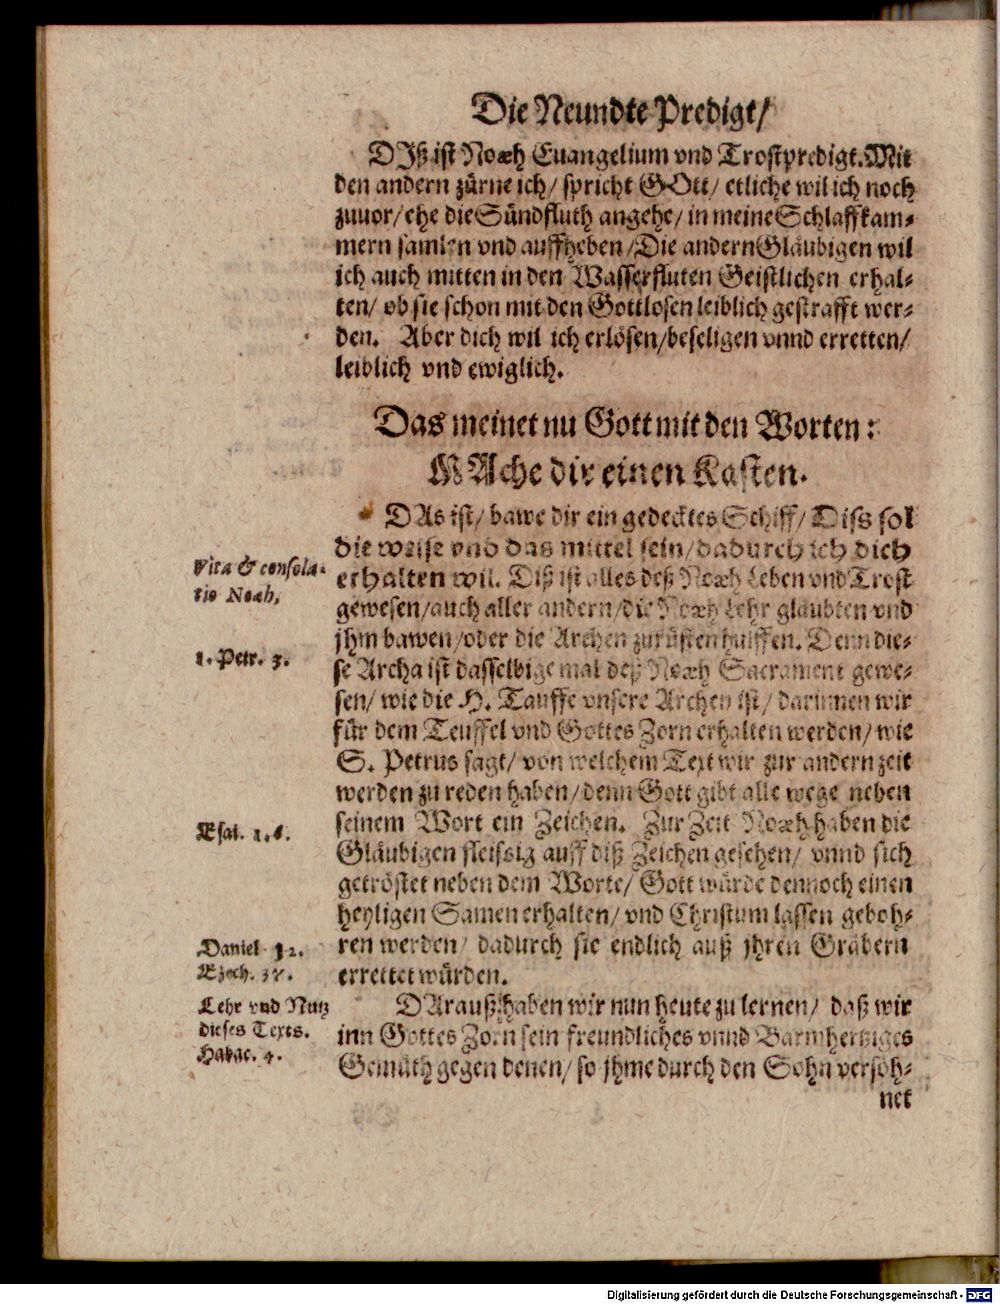 Die Neundte Predigt/
DIß ist Noæh Euangelium vnd Trostpredigt. Mit
den andern zürne ich/ spricht GOtt/ etliche wil ich noch
zuuor/ ehe die Sündfluth angehe/ in meine Schlaffkam-
mern samlen vnd auffheben/ Die andern Gläubigen wil
ich auch mitten in den Wasserfluten Geistlichen erhal-
ten/ ob sie schon mit den Gottlosen leiblich gestrafft wer-
den. Aber dich wil ich erlösen/ beseligen vnnd erretten/
leiblich vnd ewiglich.
Das meinet nu Gott mit den Worten:
MAche dir einen Kasten.
DAs ist/ bawe dir ein gedecktes Schiff/ Diss sol
die weise vnd das mittel sein/ dadurch ich dich
Vita & consola-
erhalten wil. Diß ist alles deß Noæh Leben vnd Trost
tio Noæh,
gewesen/ auch aller andern/ die Noæh Lehr gläubten vnd
jhm bawen/ oder die Archen zurüsten hulffen. Denn die-
1. Petr. 3.
se Archa ist dasselbige mal deß Noæh Sacrament gewe-
sen/ wie die H. Tauffe vnsere Archen ist/ darinnen wir
für dem Teuffel vnd Gottes Zorn erhalten werden/ wie
S. Petrus sagt/ von welchem Text wir zur andern zeit
werden zu reden haben/ denn Gott gibt alle wege neben
Esai. 1.6.
seinem Wort ein Zeichen. Zur Zeit Noæh haben die
Gläubigen fleissig auff diß Zeichen gesehen/ vnnd sich
getröstet neben dem Worte/ Gott würde dennoch einen
heyligen Samen erhalten/ vnd Christum lassen geboh-
Daniel 12.
ren werden/ dadurch sie endlich auß jhren Gräbern
Ezech. 37.
errettet würden.
Lehr vnd Nutz
DArauß haben wir nun heute zu lernen/ daß wir
dieses Texts.
inn Gottes Zorn sein freundliches vnnd Barmhertziges
Habac. 4.
Gemüth gegen denen/ so jhme durch den Sohn versöh-
net
Digitalisierung gefördert durch die Deutsche Forschungsgemeinschaft - DFG